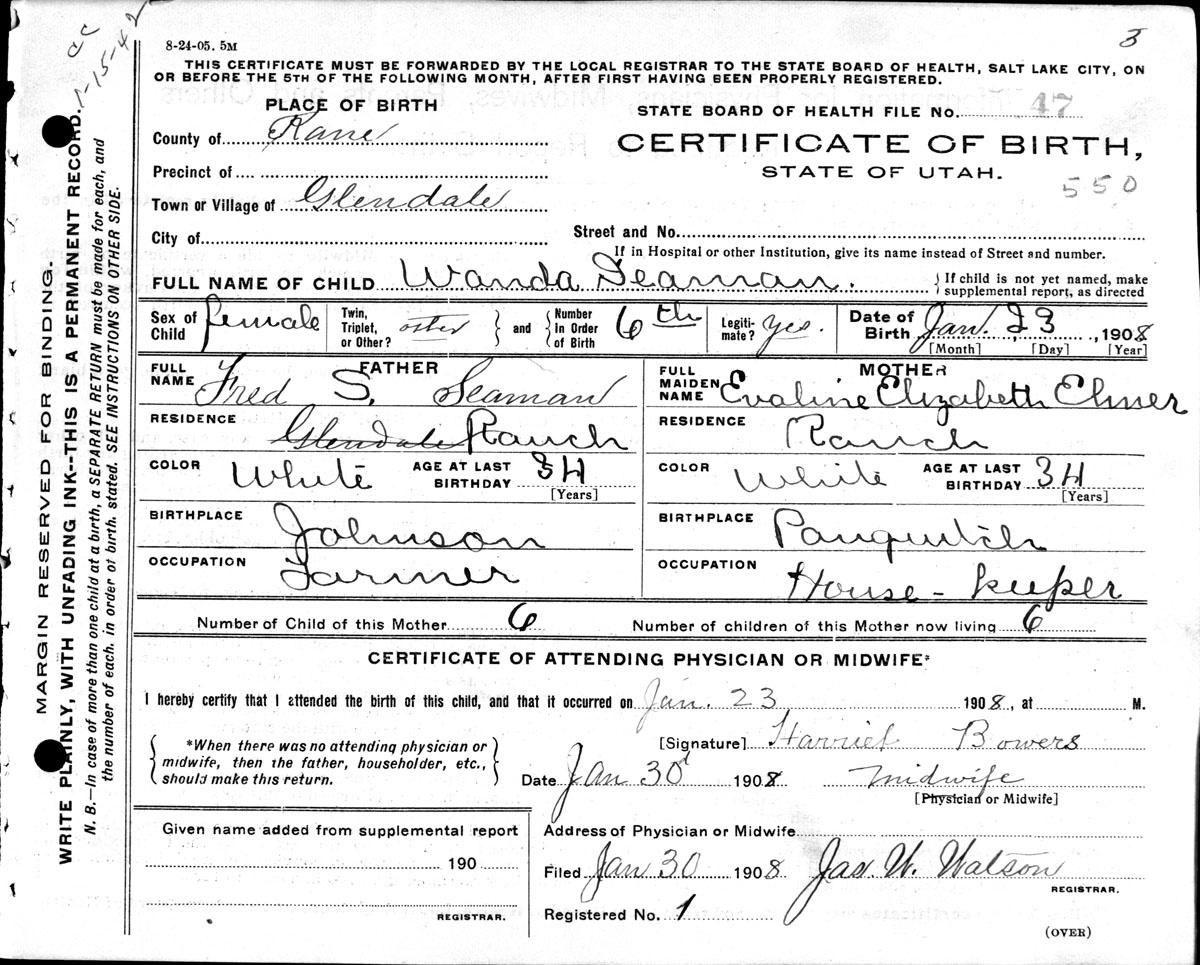 cc
1-15-42
3
8-24-05. 5M
THIS CERTIFICATE MUST BE FORWARDED BY THE LOCAL REGISTRAR TO THE STATE BOARD OF HEALTH, SALT LAKE CITY, ON
OR BEFORE THE 5TH OF THE FOLLOWING MONTH, AFTER FIRST HAVING BEEN PROPERLY REGISTERED.
PLACE OF BIRTH
STATE BOARD OF HEALTH FILE No. 47
County of Kane
CERTIFICATE OF BIRTH,
Precinct of
STATE OF UTAH.
550
Town or Village of Glendale
City of
Street and No.
If in Hospital or other Institution, give its name instead of Street and number.
FULL NAME OF CHILD Wanda Seaman. { If child is not yet named, make supplemental report, as directed
Sex of Child female Twin, Triplet, or Other? } and { Number in Order of Birth 6th Legiti-mate? yes. Date of Birth Jan. 23, 1908
[Month] [Day] [Year]
FATHER
FULL NAME Fred S. Seaman
RESIDENCE Glendale Ranch
COLOR White AGE AT LAST BIRTHDAY 34
[Years]
BIRTHPLACE Johnson
OCCUPATION Farmer
MOTHER
FULL MAIDEN NAME Evaline Elizabeth Elmer
RESIDENCE Ranch
COLOR White AGE AT LAST BIRTHDAY 34
[Years]
BIRTHPLACE Panguitch
OCCUPATION House-keeper
Number of Child of this Mother 6 Number of children of this Mother now living 6
CERTIFICATE OF ATTENDING PHYSICIAN OR MIDWIFE*
I hereby certify that I attended the birth of this child, and that it occurred on Jan. 23 1908, at M.
{ *When there was no attending physician or
midwife, then the father, householder, etc.,
should make this return. }
[Signature] Harriet Bowers
Date Jan 30 1908 midwife
[Physician or Midwife]
Given name added from supplemental report
190
REGISTRAR.
Address of Physician or Midwife
Filed Jan 30 1908 Jas. W. Watson
REGISTRAR.
Registered No. 1
(OVER)
MARGIN RESERVED FOR BINDING.
WRITE PLAINLY, WITH UNFADING INK--THIS IS A PERMANENT RECORD.
N. B.—In case of more than one child at a birth, a SEPARATE RETURN must be made for each, and
the number of each, in order of birth, stated. SEE INSTRUCTIONS ON OTHER SIDE.